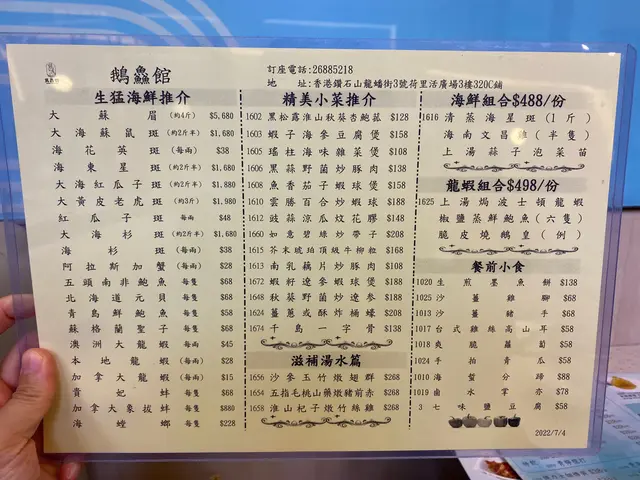 鵝鱻館
訂座電話:26885218
地　址:香港鑽石山龍蟠街3號荷里活廣場3樓320C鋪
生猛海鮮推介
大蘇眉(約4斤) $5,680
大海蘇鼠斑(約2斤半) $1,680
海花英斑(每兩) $38
海東星斑(約2斤半) $1,680
大海紅瓜子斑(約2斤半) $1,880
大黃皮老虎斑(約3斤) $1,980
紅瓜子斑 每兩 $48
大海杉斑(約2斤半) $1,680
海杉斑(每兩) $38
阿拉斯加蟹(每兩) $28
五頭南非鮑魚 每隻 $68
北海道元貝 每隻 $68
青島鮮鮑魚 每隻 $58
蘇格蘭聖子 每隻 $68
澳洲大龍蝦 每兩 $45
本地龍蝦(每兩) $28
加拿大龍蝦(每兩) $15
貴妃蚌 每隻 $68
加拿大象拔蚌 每隻 $880
海螳螂 每隻 $228
精美小菜推介
1602 黑松露淮山秋葵杏鮑菇 $128
1603 蝦子海參豆腐煲 $158
1605 瑤柱海味雜菜煲 $108
1606 黑蒜野菌炒豚肉 $138
1608 魚香茄子蝦球煲 $158
1610 雲勝百合炒蝦球 $168
1612 豉蒜涼瓜炆花膠 $148
1660 如意碧綠炒帶子 $208
1615 芥末琥珀頂級牛柳粒 $168
1613 南乳藕片炒豚肉 $108
1672 蝦籽遼參蝦球煲 $168
1648 秋葵野菌炒遼參 $188
1624 薑蔥或酥炸桶蠔 $208
1674 千島一字骨 $138
滋補湯水篇
1656 沙參玉竹燉翅群 $268
1654 五指毛桃山藥燉豬前赤 $268
1658 淮山杞子燉竹絲雞 $268
海鮮組合$488/份
1616 清蒸海星斑(1斤)
海南文昌雞(半隻)
上湯蒜子泡菜苗
龍蝦組合$498/份
1625 上湯焗波士頓龍蝦
椒鹽蒸鮮鮑魚(六隻)
脆皮燒鵝皇(例)
餐前小食
1020 生煎墨魚餅 $138
1025 沙薑雞腳 $68
1013 沙薑豬手 $68
1017 台式雞絲高山耳 $58
1018 爽脆蘿蔔 $58
1024 手拍青瓜 $58
1010 海蜇分蹄 $88
1019 鹵水掌亦 $78
3 七味鹽豆腐 $58
2022/7/4